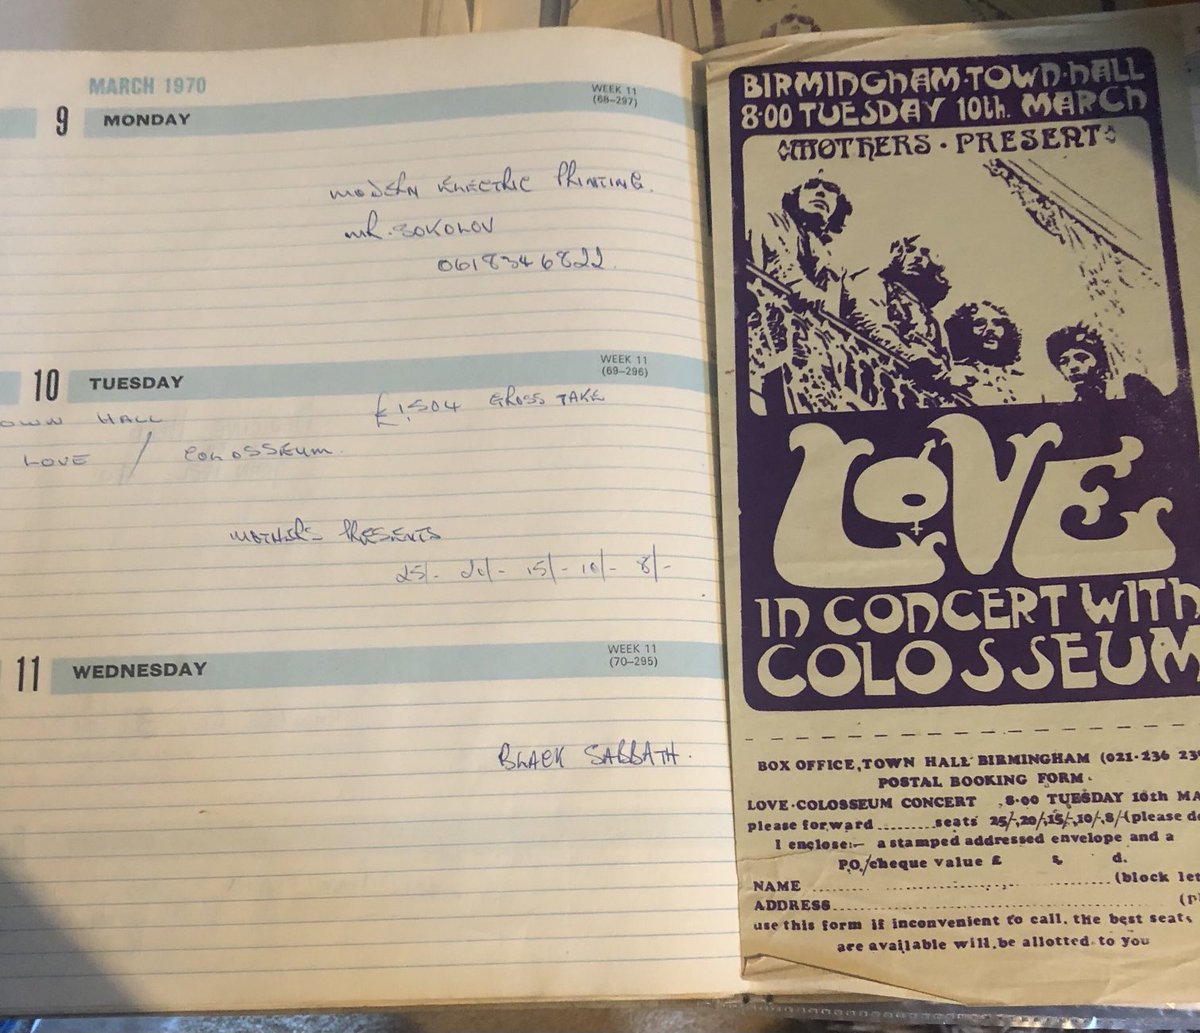 MARCH 1970
9 MONDAY
WEEK 11
(68-297)
MODERN ELECTRIC PRINTING.
MR. SOKOLOV
061 834 6822.
10 TUESDAY
WEEK 11
(69-296)
OWN HALL
£1,504 GROSS TAKE
LOVE / COLOSSEUM.
MOTHERS PRESENTS
25/- 20/- 15/- 10/- 8/-
11 WEDNESDAY
WEEK 11
(70-295)
BLACK SABBATH.
BIRMINGHAM·TOWN·HALL
8·00 TUESDAY 10th. MARCH
MOTHERS · PRESENT
LOVE
IN CONCERT WITH
COLOSSEUM
BOX OFFICE, TOWN HALL BIRMINGHAM (021-236 23
POSTAL BOOKING FORM.
LOVE·COLOSSEUM CONCERT ,8·00 TUESDAY 10th MA
please forward ........ seats 25/-,20/-,15/-,10/-,8/-(please de
I enclose:- a stamped addressed envelope and a
P.O./cheque value £ s. d.
NAME .......................................(block let
ADDRESS.......................................
use this form if inconvenient to call, the best seats
are available will, be allotted to you